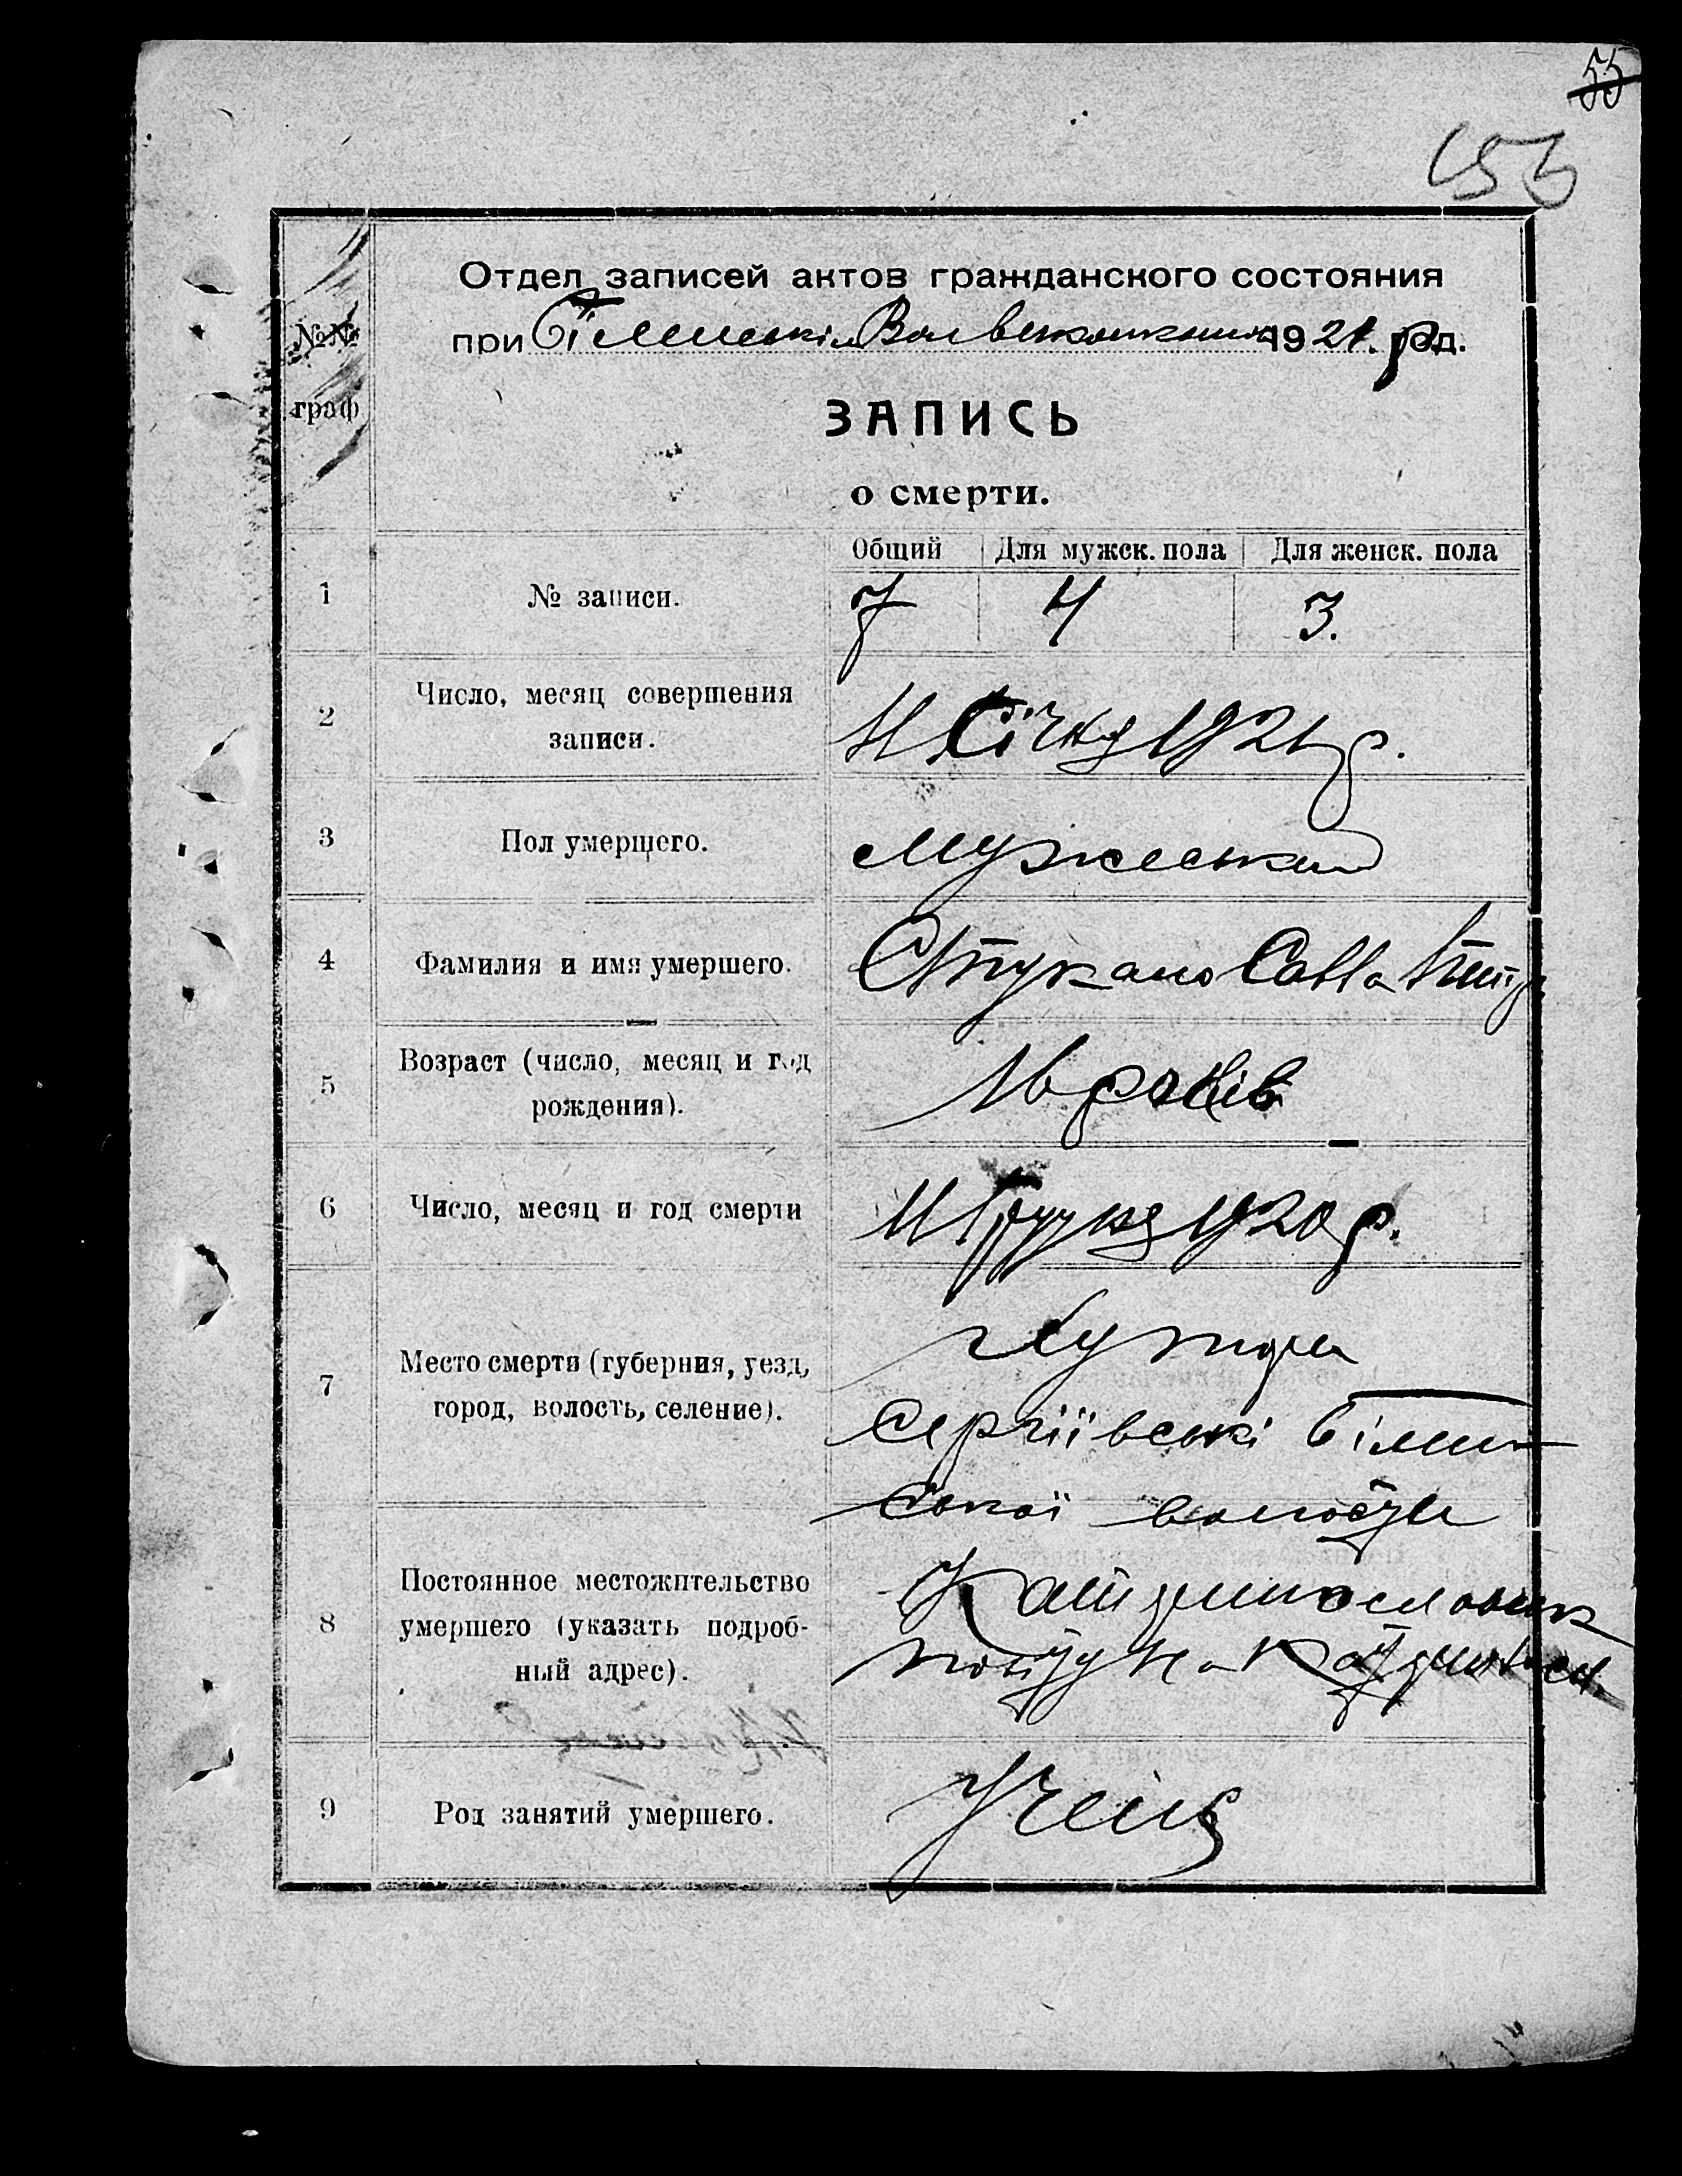 55
№№
граф
Отдел записей актов гражданского состояния
при 1921 р.
ЗАПИСЬ
о смерти.
Общий Для мужск. пола Для женск. пола
1 № записи. 7 4 3.
2 Число, месяц совершения
записи. Січня 1921 р.
3 Пол умершего. Мужеський
4 Фамилия и имя умершего. Стукало Савва
5 Возраст (число, месяц и год
рождения). 16 років
6 Число, месяц и год смерти 11 Грудня 1920 р.
7 Место смерти (губерния, уезд,
город, волость, селение). Хутори
Сергіївські Білен-
ської волости
8 Постоянное местожительство
умершего (указать подроб-
ный адрес).
9 Род занятий умершего. Учень